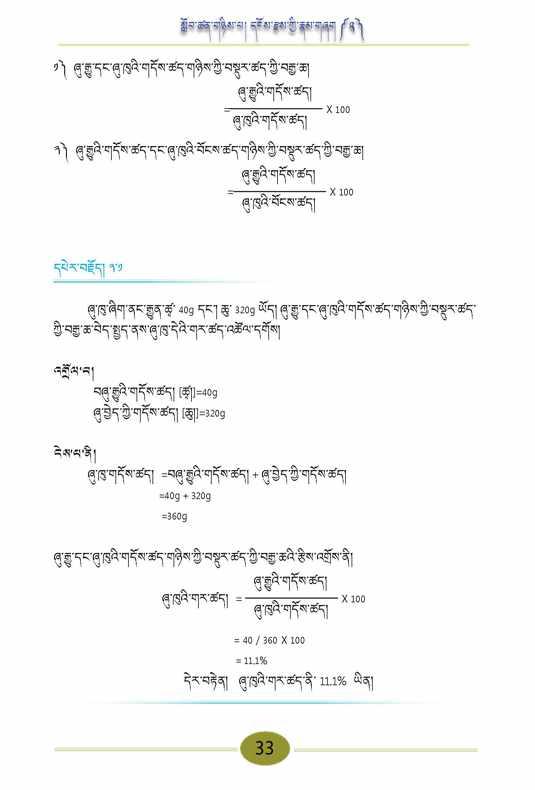 སློབ་ཚན་གཉིས་པ། དངོས་རྫས་ཀྱི་རྣམ་གཞག (༢)
༡) ཞུ་རྒྱུ་དང་ཞུ་ཁུའི་གདོས་ཚད་གཉིས་ཀྱི་བསྡུར་ཚད་ཀྱི་བརྒྱ་ཆ།
ཞུ་རྒྱུའི་གདོས་ཚད།
= X 100
ཞུ་ཁུའི་གདོས་ཚད།
༢) ཞུ་རྒྱུའི་གདོས་ཚད་དང་ཞུ་ཁུའི་བོངས་ཚད་གཉིས་ཀྱི་བསྡུར་ཚད་ཀྱི་བརྒྱ་ཆ།
ཞུ་རྒྱུའི་གདོས་ཚད།
= X 100
ཞུ་ཁུའི་བོངས་ཚད།
དཔེར་བརྗོད། ༢.༡
ཞུ་ཁུ་ཞིག་ནང་རྒྱུན་ཚྭ་ 40g དང་། ཆུ་ 320g ཡོད། ཞུ་རྒྱུ་དང་ཞུ་ཁུའི་གདོས་ཚད་གཉིས་ཀྱི་བསྡུར་ཚད་
ཀྱི་བརྒྱ་ཆ་བེད་སྤྱད་ནས་ཞུ་ཁུ་དེའི་གར་ཚད་འཚོལ་དགོས།
འགྲོལ་བ།
བཞུ་རྒྱུའི་གདོས་ཚད། [ཚྭ།]=40g
ཞུ་བྱེད་ཀྱི་གདོས་ཚད། [ཆུ།]=320g
ངེས་པ་ནི།
ཞུ་ཁུ་གདོས་ཚད། =བཞུ་རྒྱུའི་གདོས་ཚད། + ཞུ་བྱེད་ཀྱི་གདོས་ཚད།
=40g + 320g
=360g
ཞུ་རྒྱུ་དང་ཞུ་ཁུའི་གདོས་ཚད་གཉིས་ཀྱི་བསྡུར་ཚད་ཀྱི་བརྒྱ་ཆའི་རྩིས་འགྲོས་ནི།
ཞུ་རྒྱུའི་གདོས་ཚད།
ཞུ་ཁུའི་གར་ཚད། = X 100
ཞུ་ཁུའི་གདོས་ཚད།
= 40 / 360 X 100
= 11.1%
དེར་བརྟེན། ཞུ་ཁུའི་གར་ཚད་ནི་ 11.1% ཡིན།
33